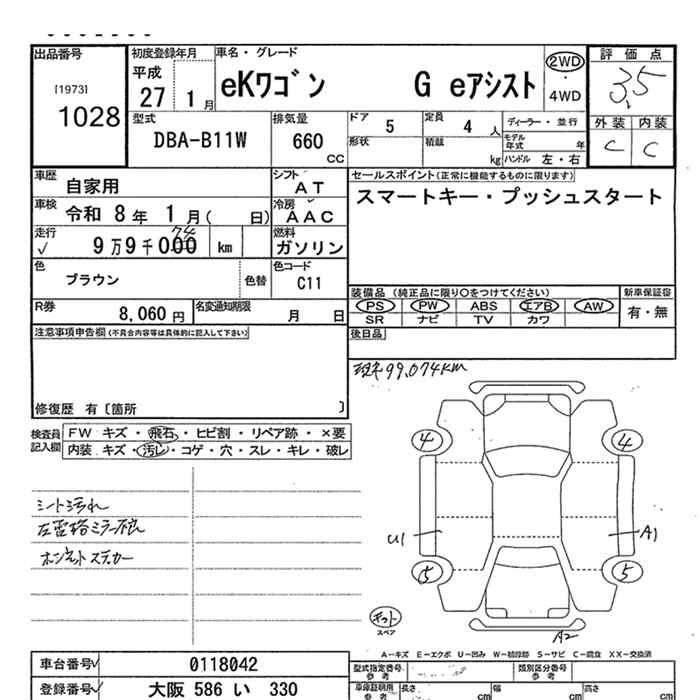 出品番号
[1973]
1028
初度登録年月
平成
27 1月
車名・グレード
eKワゴン G eアシスト
2WD
・
4WD
評価点
3.5
外装 内装
C C
型式
DBA-B11W
排気量
660
CC
ドア 5
形状
定員 4 人
積載 kg
ディーラー・並行
モデル年式 年
ハンドル 左・右
車歴
自家用
シフト
AT
車検
令和 8年 1月( 日)
冷房
AAC
走行
√ 9万9千000 km
74
燃料
ガソリン
色
ブラウン
色替
色コード
C11
R券
8,060円
名変通知期限
月 日
セールスポイント(正常に機能するものに限ります)
スマートキー・プッシュスタート
装備品 (純正品に限り○をつけてください)
PS PW ABS エアB AW
SR ナビ TV カワ
新車保証書
有・無
後日品
注意事項申告欄(不具合内容等は具体的に記入して下さい)
修復歴 有〔箇所 〕
現キ99,074km
検査員記入欄
FW キズ・飛石・ヒビ割・リペア跡・×要
内装 キズ・汚レ・コゲ・穴・スレ・キレ・破レ
シート汚れ
ボンネットステッカー
4 4
U1 A1
5 5
スペア
A2
A-キズ E-エクボ U-凹み W-補修跡 S-サビ C-腐食 XX-交換済
車台番号
0118042
登録番号
大阪 586 い 330
型式指定番号
参考
類別区分番号
参考
車庫証明用
参考
長さ cm
幅 cm
高さ cm